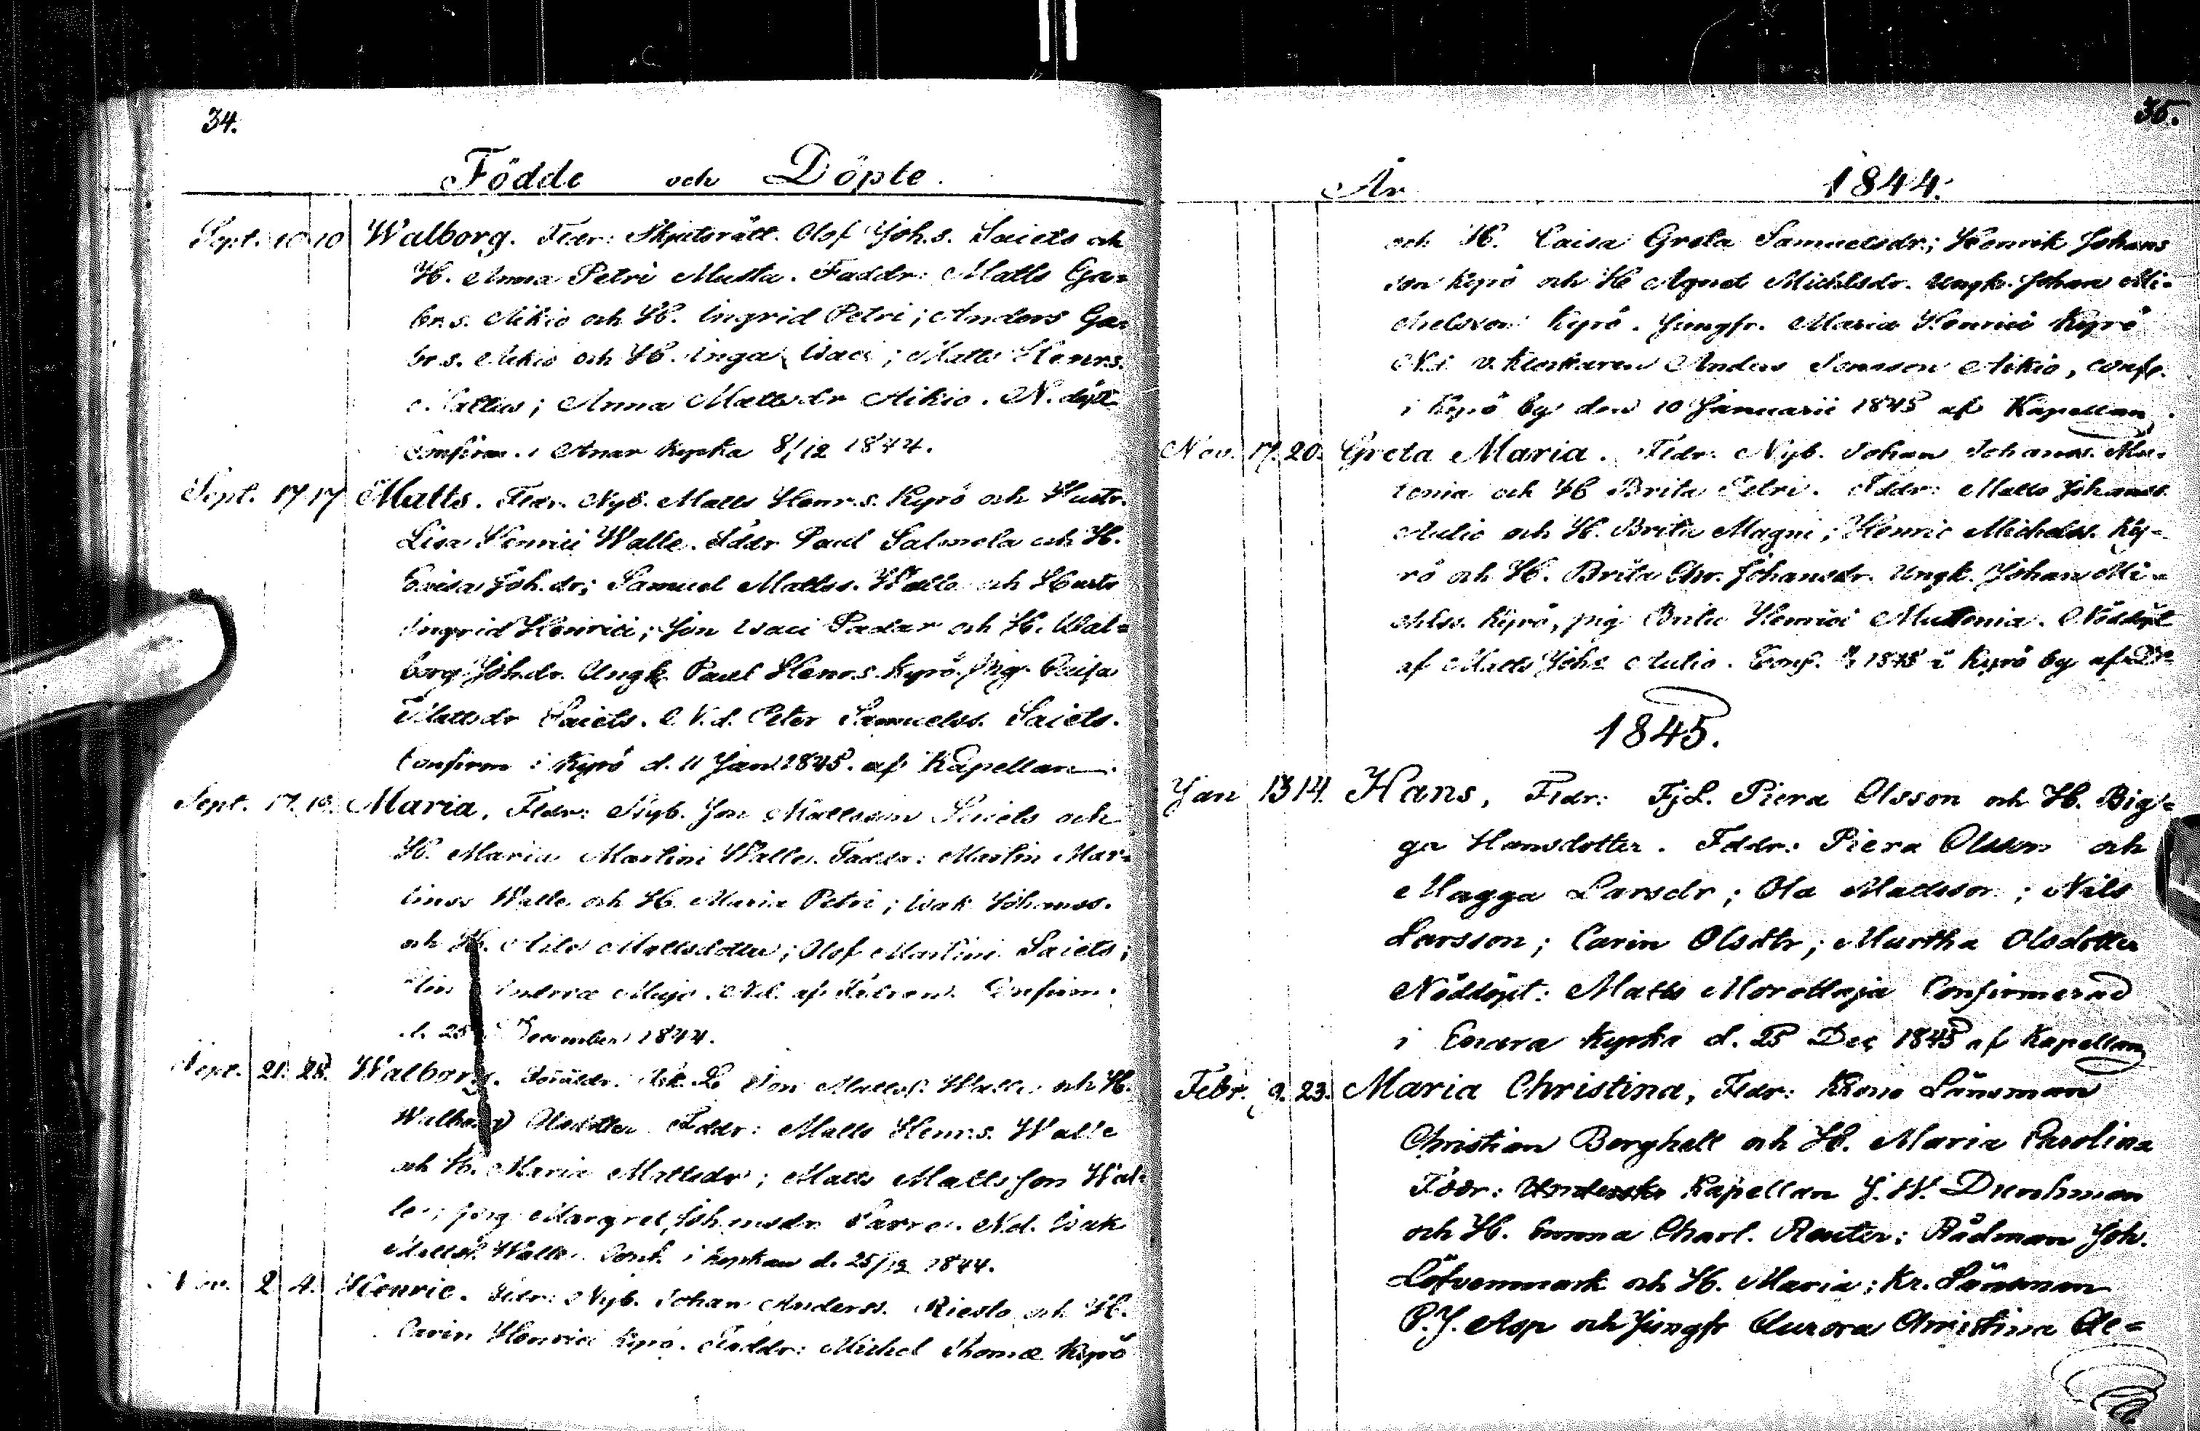 34.
Födde och Döpte.
Sept. 10 10 Walborg. Fldr: Skjutsrätt. Olof Joh.s. Saiets och
H. Anna Petri Mutta. Faddr: Matts Ga=
br.s. Aikio och H. Ingrid Petri; Anders Ga=
br.s. Aikio och H. Inga Isaci; Matts Henr.s.
Anna Mattsdr Aikio. N. döpt
Confirm. i Enar Kyrka 8/12 1844.
Sept. 17 17 Matts. Fldr. Nyb. Matts Henr.s. Kyrö och Hustr.
Lisa Henrici Walle. Fddr Paul Salmela och H.
Caisa Joh.dr; Samuel Matts. Walle och Hustr
Ingrid Henrici; Jon Isaci Padar och H. Wal=
borg Joh.dr. Ungk. Paul Henr.s. Kyrö. Pig. Caisa
Mattsdr Saiets. N.d. Peter Samuelss. Saiets.
Confirm i Kyrö d. 11 Jan 1845. af Kapellan.
Sept. 17. Maria. Fldr: Nyb. Jon Mattsson Saiets och
H. Maria Martini Walle. Faddr: Martin Mar=
tinss Walle och H. Maria Petri; Isak Johanss.
och H. Mattsdotter; Olof Martini Saiets;
Mujo. N.d. af Fadren. Confirm.
d. 25 December 1844.
Sept. 21. 28. Walborg. Föräldr. Jon Mattss. Walle och H.
Walborg Olsdotter. Fddr: Matts Henr.s. Walle
och H. Maria Mattsdr; Matts Mattsson Wal=
le; pig Margret Johansdr Sarre. N.d. Isak
Mattss. Walle. Conf. i kyrkan d. 25/12 1844.
Nov. 2 4. Henric. Fldr: Nyb. Johan Anderss. Riesto och H.
Carin Henrici Kyrö. Faddr: Michel Thomæ Kyrö
35.
År 1844.
och H. Caisa Greta Samuelsdr; Henrik Johans
son Kyrö och H Agnet Michlsdr. Ungk. Johan Mi=
chelsson Kyrö. Jungfr. Maria Henrici Kyrö
N.d. v. klockaren Anders Jonsson Aikio, Conf.
i Kyrö by den 10 Januarii 1845 af Kapellan.
Nov. 17. 20. Greta Maria. Fldr: Nyb. Johan Johanss. Mu=
tenia och H Brita Petri. Fddr: Matts Johanss.
Aulio och H. Brita Magni; Henric Michelss. Ky=
rö och H. Brita Chr. Johansdr. Ungk. Johan Mi=
chlss. Kyrö, pig Brita Henrici Muttenia. Nöddöpt
af Matts Johs Aulio. Conf. 1845 i Kyrö by af
1845.
Jan 13 14. Hans, Fldr: Fj.L. Piera Olsson och H. Big=
ga Hansdotter. Fddr: Piera Olsson och
Magga Larsdr; Ola Mattsson; Nils
Larsson; Carin Olsdtr; Martha Olsdotter
Nöddöpt: Matts Morottaja Confirmerad
i Enara kyrka d. 25 Dec 1845 af Kapellan
Febr. 9. 23. Maria Christina, Fldr: Krono Länsman
Christian Borghell och H. Maria Carolina
Fddr: Kapellan J. W. Durchman
och H. Emma Charl. Reuter; Rådman Joh.
Löfvenmark och H. Maria; Kr. Länsman
P. J. Asp och Jungfr Aurora Christina Ae=